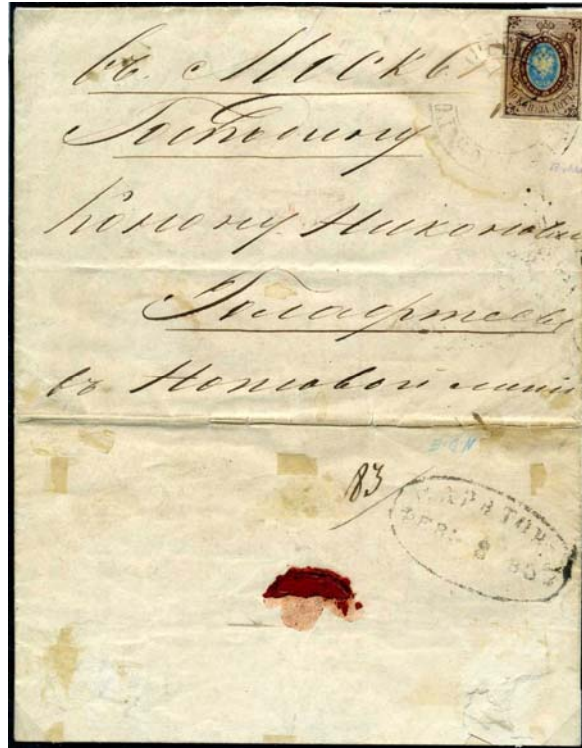 въ Москв
Господину
Конону Никонови
Голофтееву
въ Ножовой линiи
83
САРАТОВЪ
ФЕВР. 8 185